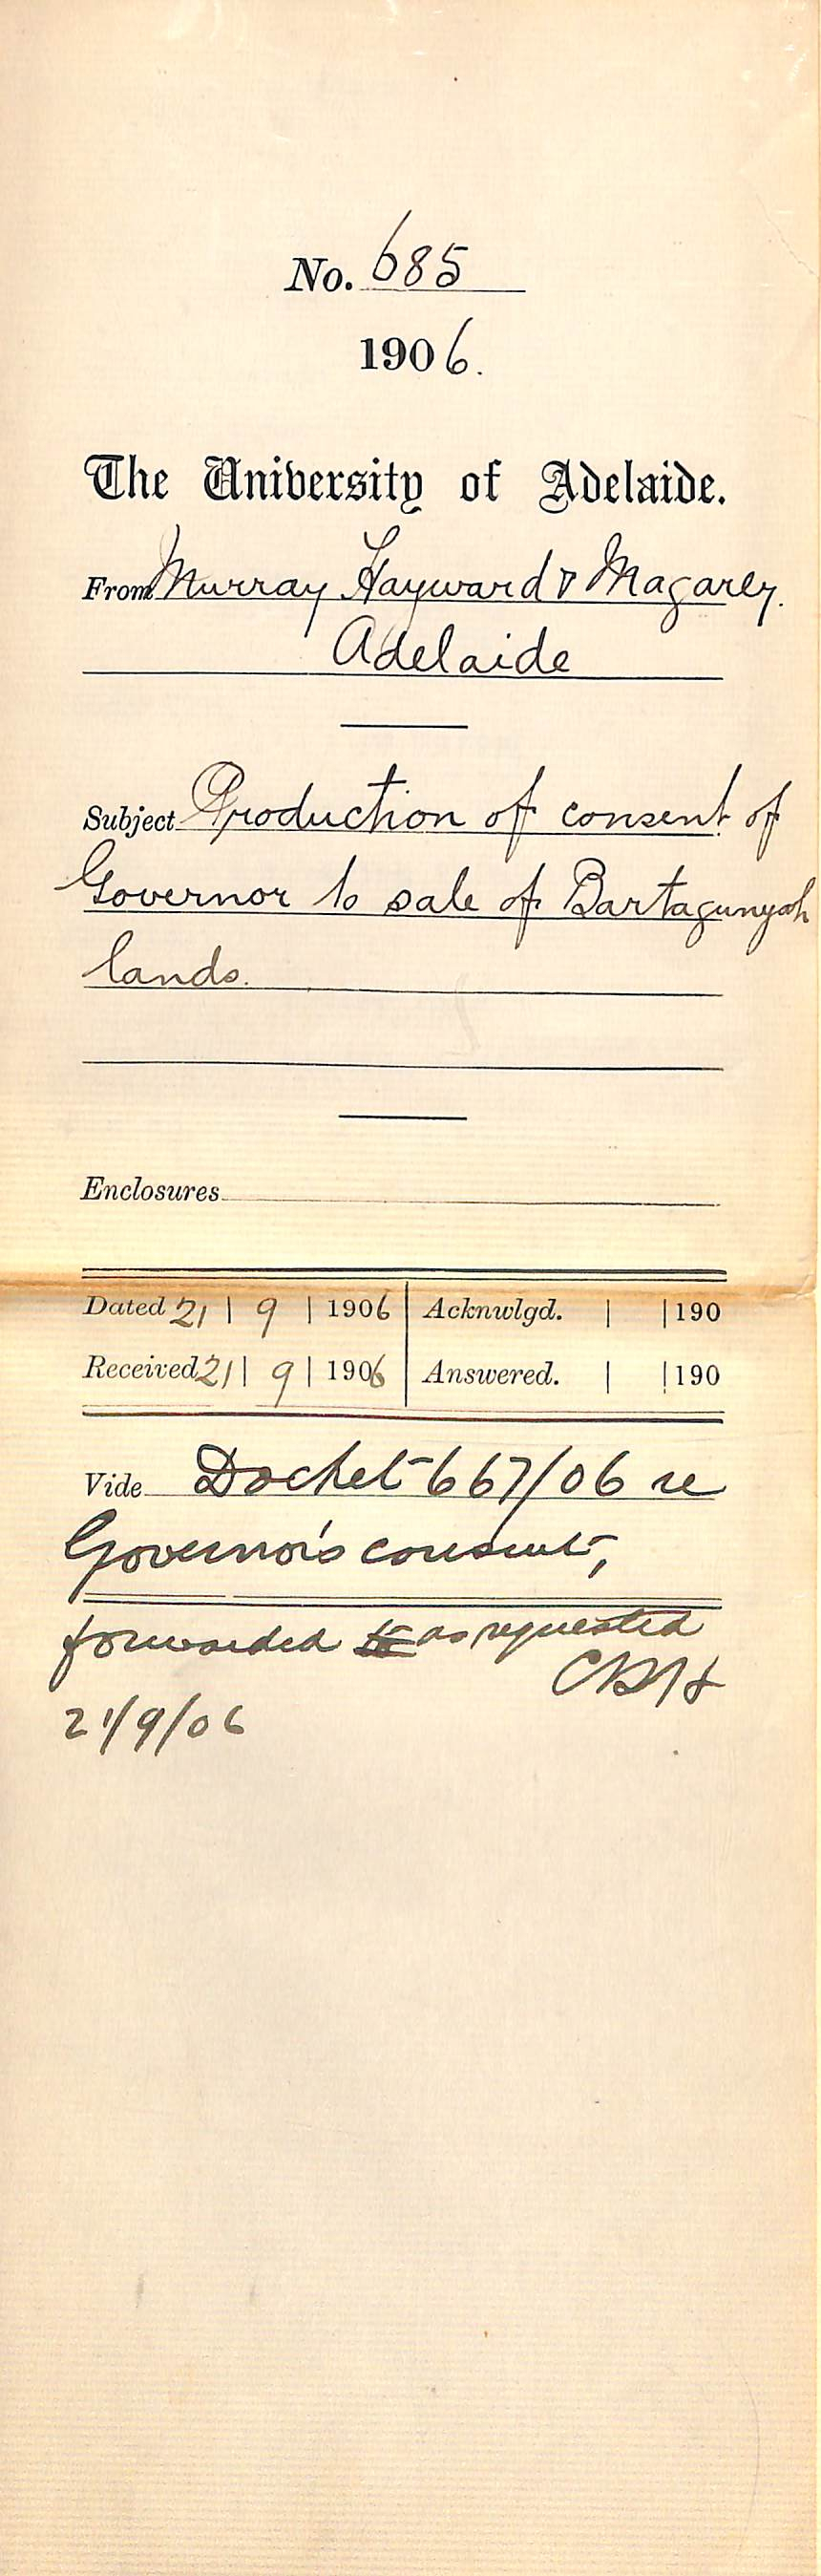 No. 685
1906.
The University of Adelaide.
From Murray Hayward & Magarey.
Adelaide
Subject Production of consent of
Governor to sale of Bartagunyah
lands.
Enclosures
Dated 21 | 9 | 1906 Acknwlgd. | | 190
Received 21 | 9 | 1906 Answered. | | 190
Vide Docket 667/06 re
Governor's consent,
forwarded as requested
CRH
21/9/06